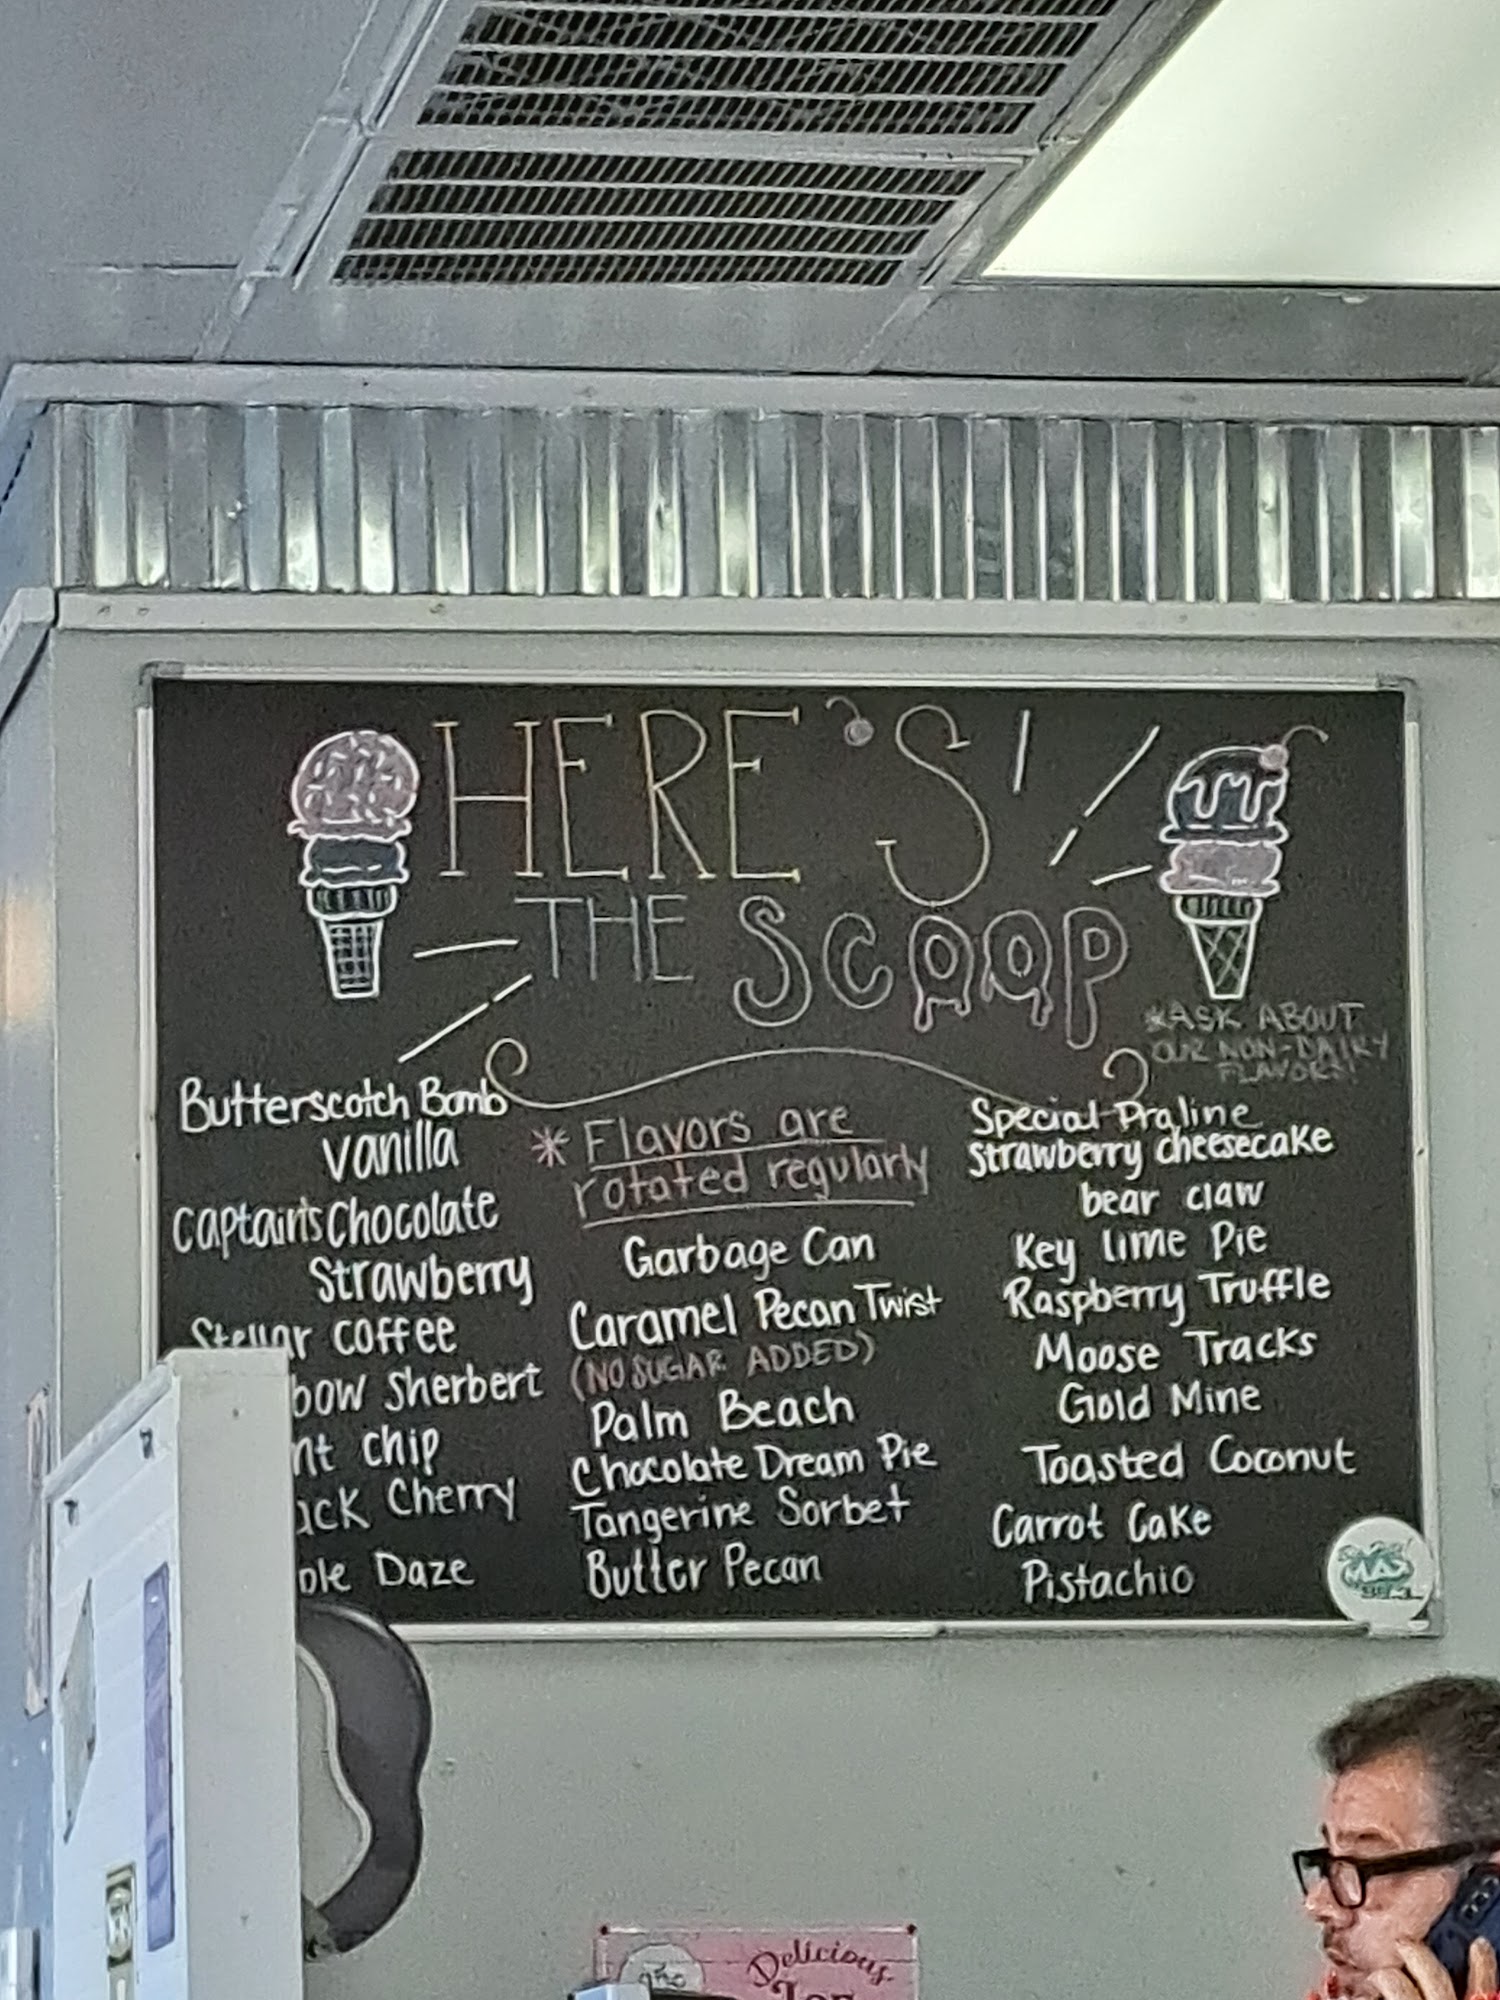 HERE'S
THE SCOOP
*ASK ABOUT
OUR NON-DAIRY
FLAVORS!
Butterscotch Bomb
Vanilla
Captain's Chocolate
Strawberry
Stellar coffee
bow Sherbert
nt chip
ack Cherry
ole Daze
* Flavors are
rotated regularly
Garbage Can
Caramel Pecan Twist
(NO SUGAR ADDED)
Palm Beach
Chocolate Dream Pie
Tangerine Sorbet
Butter Pecan
Special Praline
Strawberry cheesecake
bear claw
Key lime Pie
Raspberry Truffle
Moose Tracks
Gold Mine
Toasted Coconut
Carrot Cake
Pistachio
MAS
Delicious